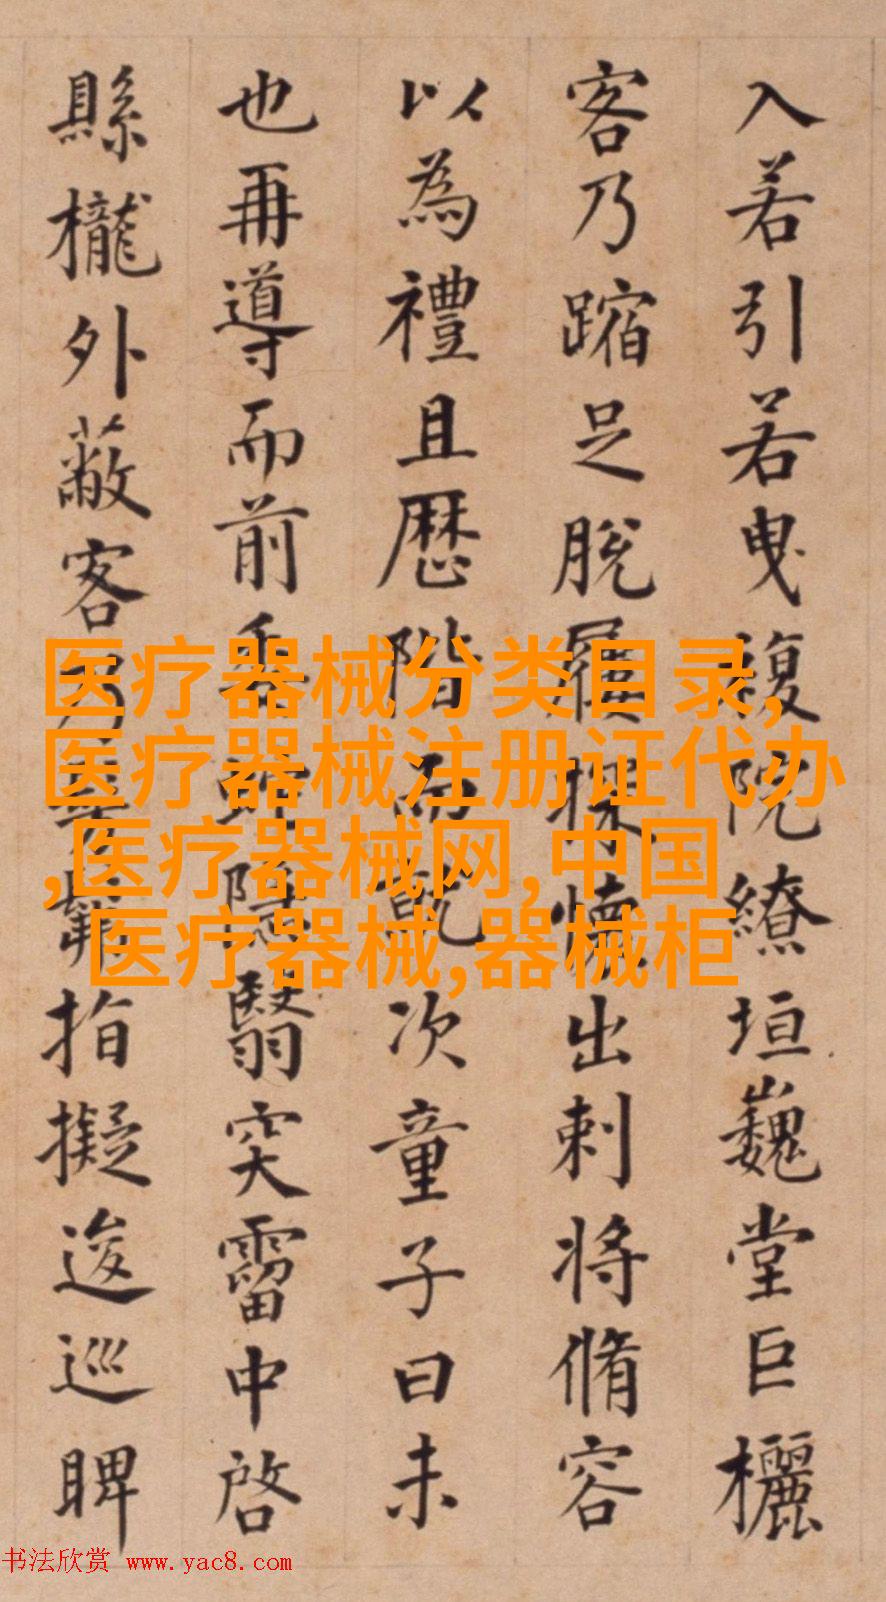 入若引若曳複院繚垣巍堂巨欐
客乃蹜足脫屨探懷出刺將脩容
以為禮且歷階而次童子曰未
也再導而前翳突霤中啓
縣櫳外蔽客乃指擬逡巡睥
医疗器械分类目录,
医疗器械注册证代办
,医疗器械网,中国
医疗器械,器械柜
书法欣赏 www.yac8.com